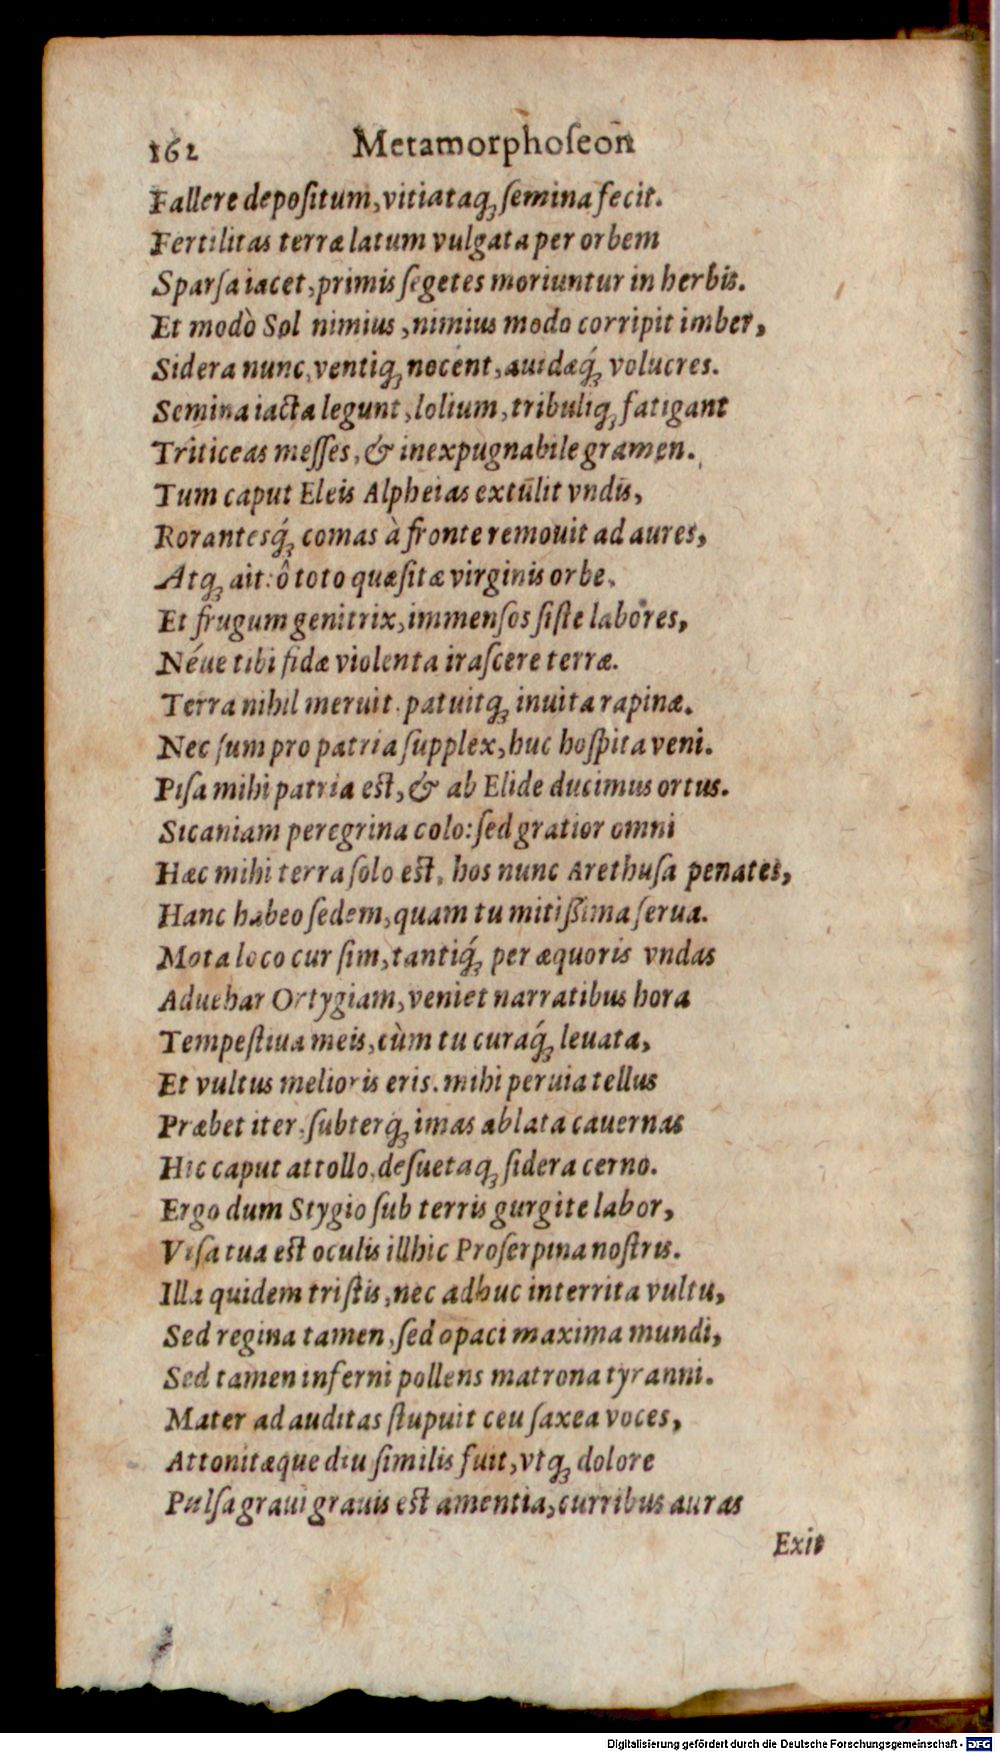 162 Metamorphoseon
Fallere depositum, vitiataq; semina fecit.
Fertilitas terræ latum vulgata per orbem
Sparsa iacet, primis segetes moriuntur in herbis.
Et modò Sol nimius, nimius modo corripit imber,
Sidera nunc, ventiq; nocent, auidæq́; volucres.
Semina iacta legunt, lolium, tribuliq; fatigant
Triticeas messes, & inexpugnabile gramen.
Tum caput Eleis Alpheias extulit vndis,
Rorantesq́; comas à fronte remouit ad aures,
Atq; ait: ô toto quæsitæ virginis orbe,
Et frugum genitrix, immensos siste labores,
Néue tibi fidæ violenta irascere terræ.
Terra nihil meruit. patuitq; inuita rapinæ.
Nec sum pro patria supplex, huc hospita veni.
Pisa mihi patria est, & ab Elide ducimus ortus.
Sicaniam peregrina colo: sed gratior omni
Hæc mihi terra solo est, hos nunc Arethusa penates,
Hanc habeo sedem, quam tu mitißima serua.
Mota loco cur sim, tantiq́; per æquoris vndas
Aduehar Ortygiam, veniet narratibus hora
Tempestiua meis, cùm tu curaq́; leuata,
Et vultus melioris eris. mihi peruia tellus
Præbet iter, subterq́; imas ablata cauernas
Hic caput attollo, desuetaq; sidera cerno.
Ergo dum Stygio sub terris gurgite labor,
Visa tua est oculis illhic Proserpina nostris.
Illa quidem tristis, nec adhuc interrita vultu,
Sed regina tamen, sed opaci maxima mundi,
Sed tamen inferni pollens matrona tyranni.
Mater ad auditas stupuit ceu saxea voces,
Attonitæque diu similis fuit, vtq; dolore
Pulsa graui grauis est amentia, curribus auras
Exit
Digitalisierung gefördert durch die Deutsche Forschungsgemeinschaft - DFG